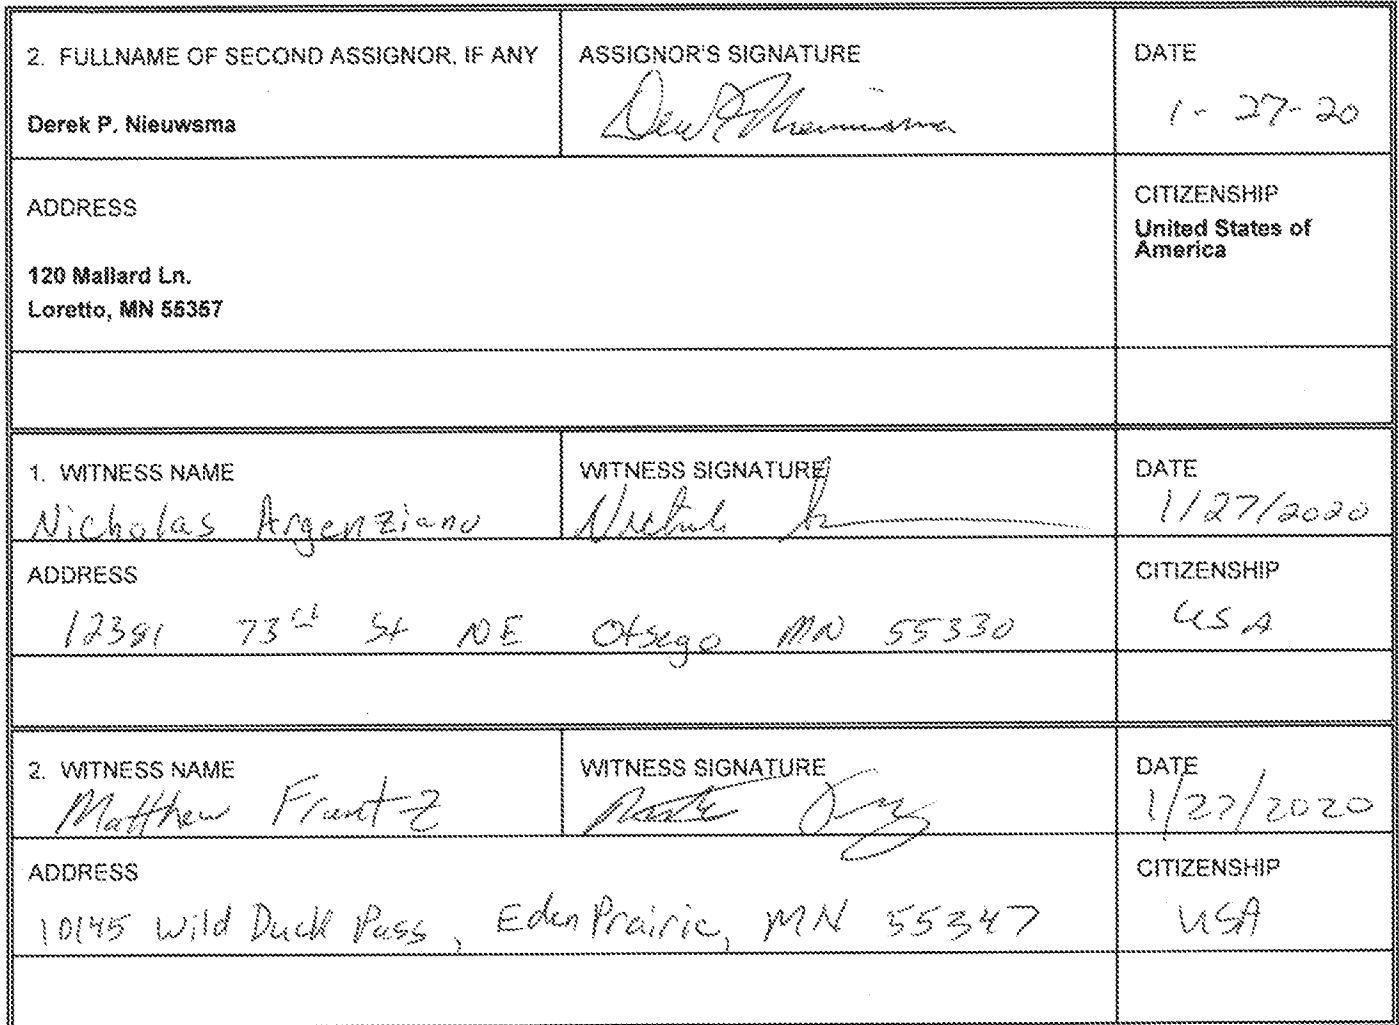 2. FULLNAME OF SECOND ASSIGNOR, IF ANY
Derek P. Nieuwsma
ASSIGNOR'S SIGNATURE
DATE
1-27-20
ADDRESS
120 Mallard Ln.
Loretto, MN 55357
CITIZENSHIP
United States of
America
1. WITNESS NAME
Nicholas Argenziano
WITNESS SIGNATURE
DATE
1/27/2020
ADDRESS
73rd St NE Otsego MN 55330
CITIZENSHIP
USA
2. WITNESS NAME
Matthew Frantz
WITNESS SIGNATURE
DATE
1/27/2020
ADDRESS
10145 Wild Duck Pass, Eden Prairie, MN 55347
CITIZENSHIP
USA